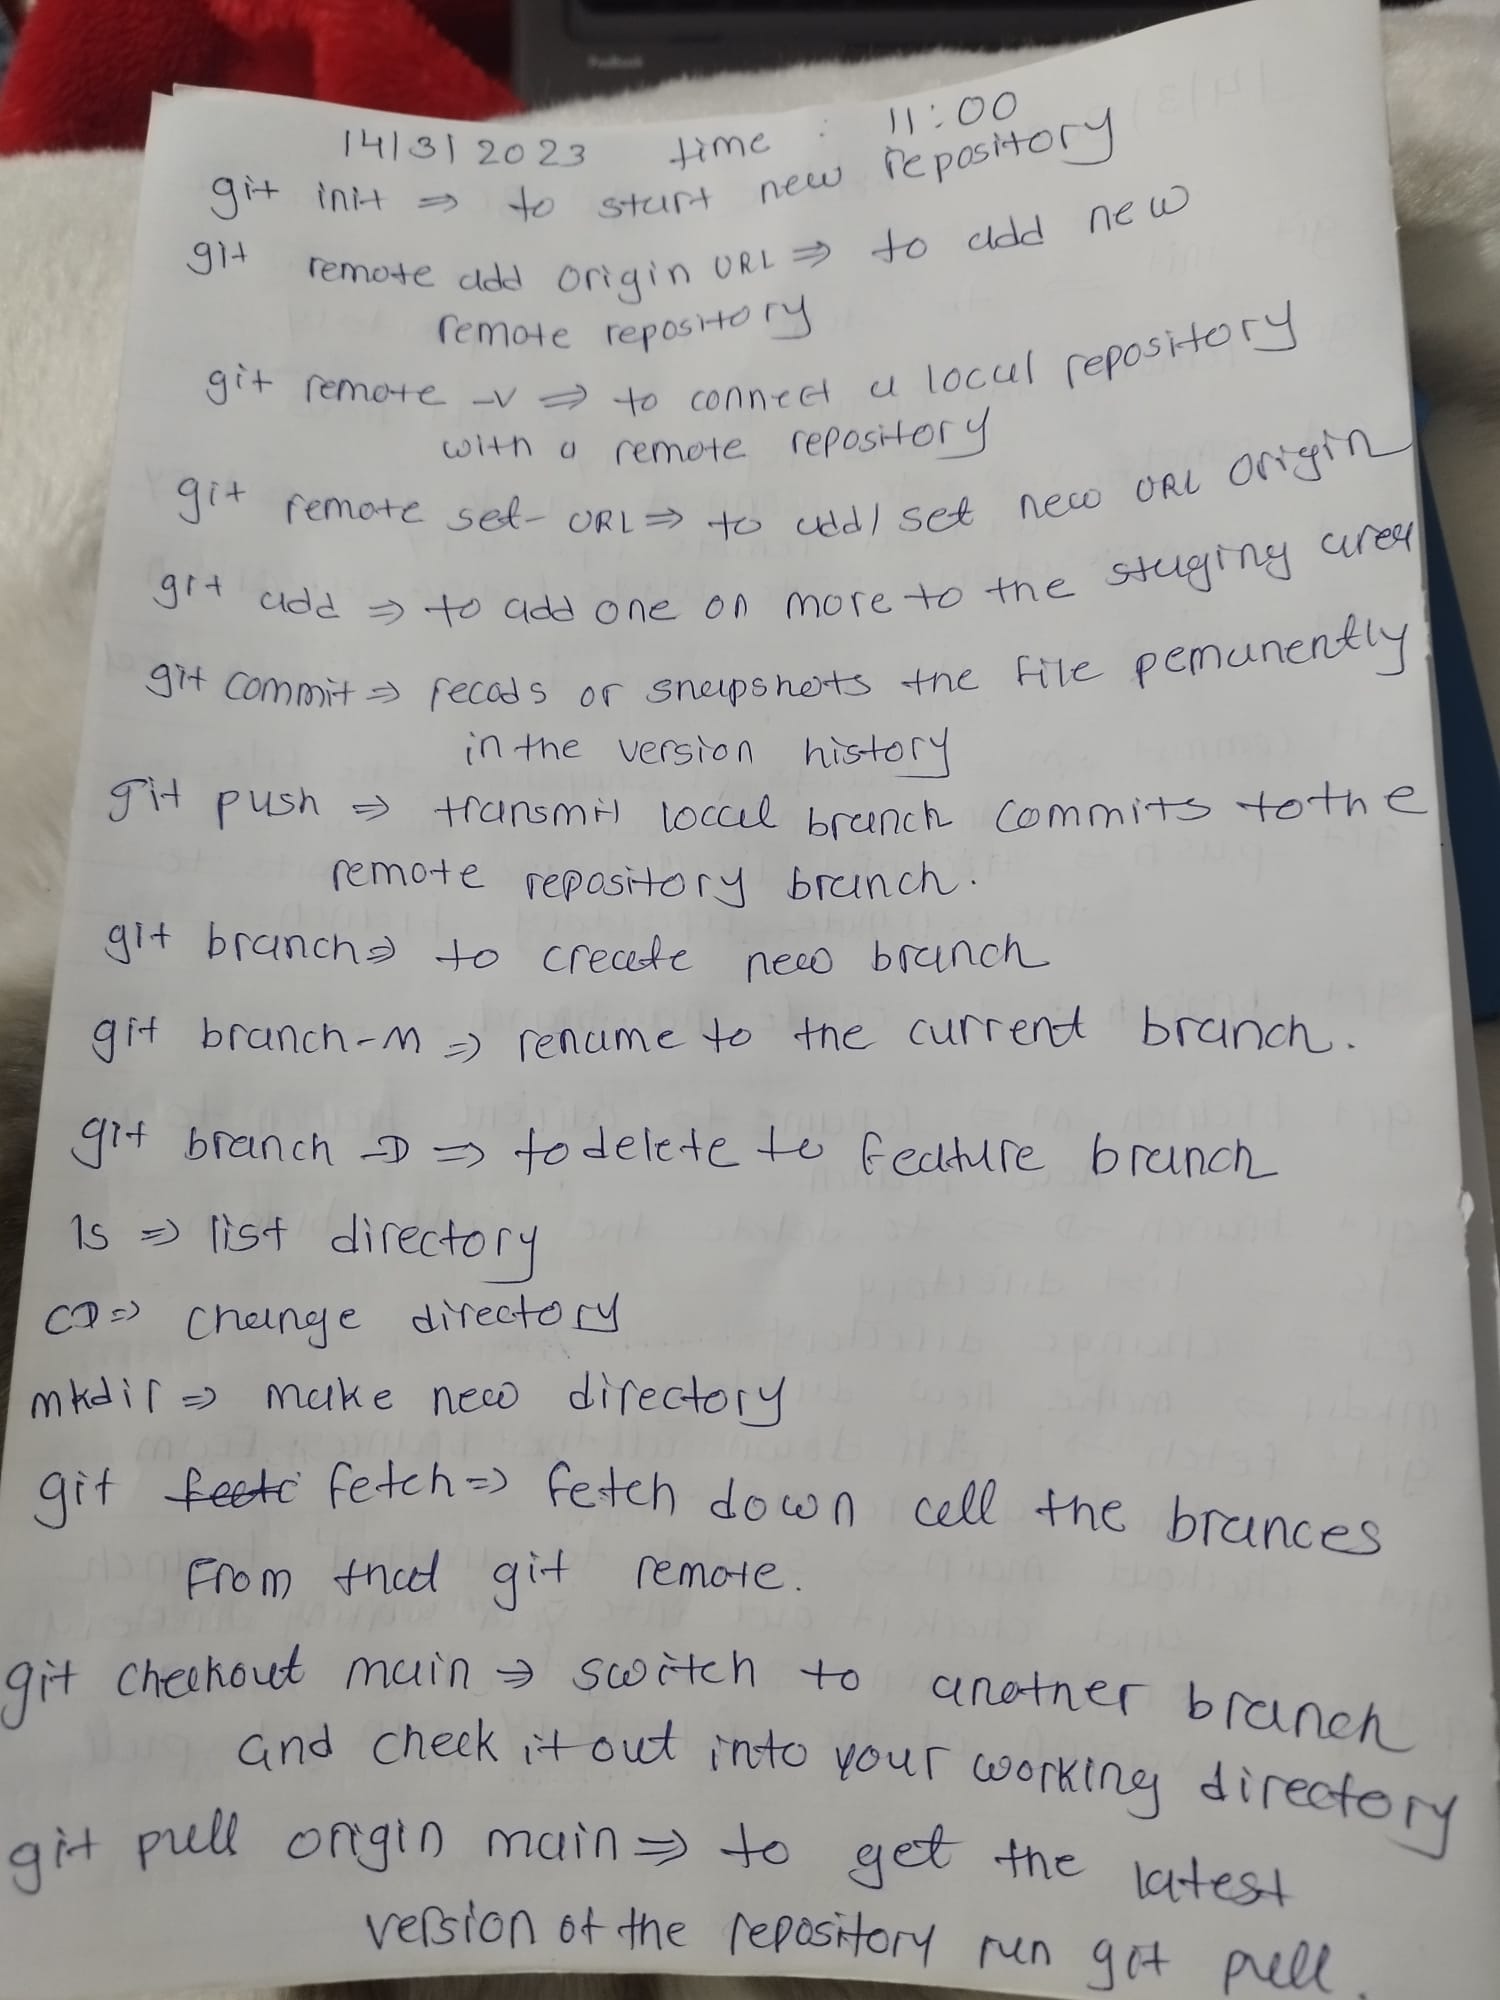 ProBook
14/3/2023 time : 11:00
git init ⇒ to start new repository
git remote add origin URL ⇒ to add new
remote repository
git remote -v ⇒ to connect a local repository
with a remote repository
git remote set-URL ⇒ to add/set new URL origin
git add ⇒ to add one on more to the staging area
git commit ⇒ recods or snapshots the file pemanently
in the version history
git push ⇒ transmit local branch commits to the
remote repository branch.
git branch ⇒ to create new branch
git branch-M ⇒ rename to the current branch.
git branch -D ⇒ to delete to feature branch
ls ⇒ list directory
CD ⇒ change directory
mkdir ⇒ make new directory
git fetch ⇒ fetch down all the brances
From that git remote.
git checkout main ⇒ switch to another branch
and check it out into your working directory
git pull origin main ⇒ to get the latest
version of the repository run git pull.